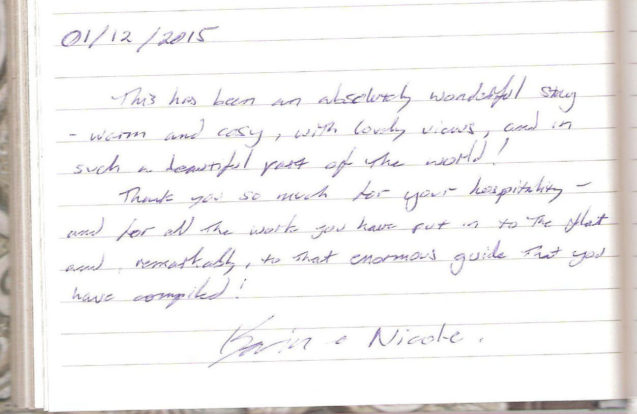 01/12/2015
This has been an absolutely wonderful stay
- warm and cosy, with lovely views, and in
such a beautiful part of the world!
Thank you so much for your hospitality -
and for all the work you have put in to the flat
and, remarkably, to that enormous guide that you
have compiled!
& Nicole.